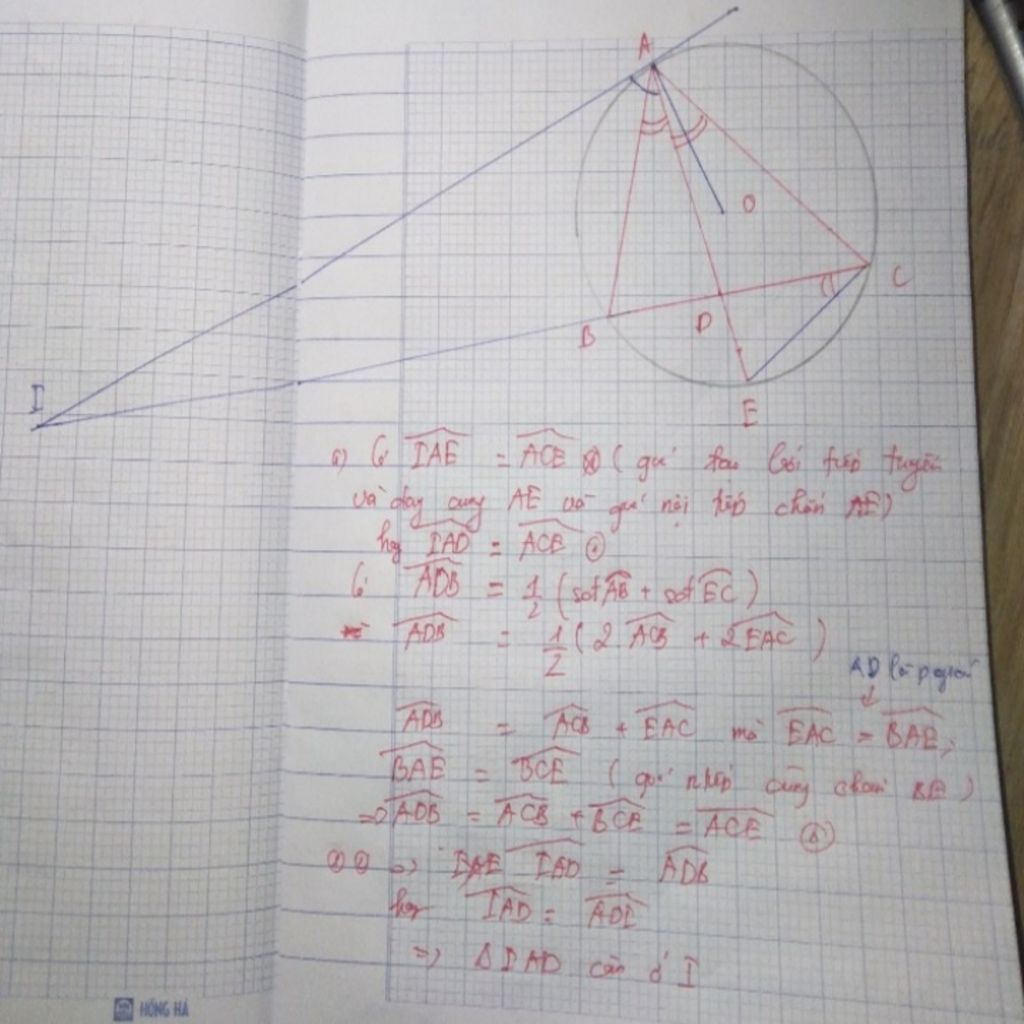 A
O
C
B
D
I
E
a) Có IAE = ACE (góc tạo bởi tiếp tuyến
và dây cung AE và góc nội tiếp chắn AE)
hay IAD = ACE
Có ADB = 1/2 (sđAB + sđEC)
ADB = 1/2 (2 ACB + 2 EAC)
AD là pgiác
ADB = ACB + EAC mà EAC = BAE,
BAE = BCE (góc cùng chắn BE)
=> ADB = ACB + BCE = ACE
=> IAD = ADB
hay IAD = ADI
=> Δ IAD cân ở I
HỒNG HÀ